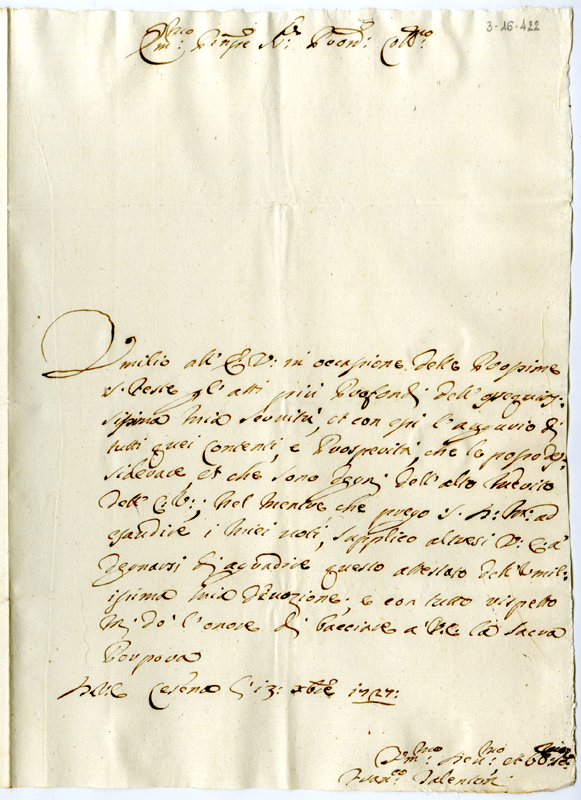 3-16-422
Em:mo Pnpe Sr: Pron: Coll:mo
Umilio all' E. V: in occasione delle Prossime
S. Feste gli atti più Profondi dell' ossequios-
sissima mia servitù, et con essi l'augurio di
tutti quei Contenti, e Prosperità che le posso de-
siderare, et che sono degni dell' alto
dell' E. V:; Nel mentre che prego S. D. M: ad
esaudire i miei voti, supplico altresì V: Eza
degnarsi di aggradire questo attestato dell' Umil-
issima mia devozione; e con tutto rispetto
mi dò l'onore di bacciare a V. E la Sacra
Porpora
D. V. E Cesena li 13: Xbre 1727:
Um:mo Dev:mo et Ob:
Fran:co Valentini